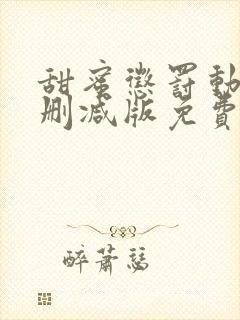 甜蜜懲罰動
刪減版免費
醉蕭瑟